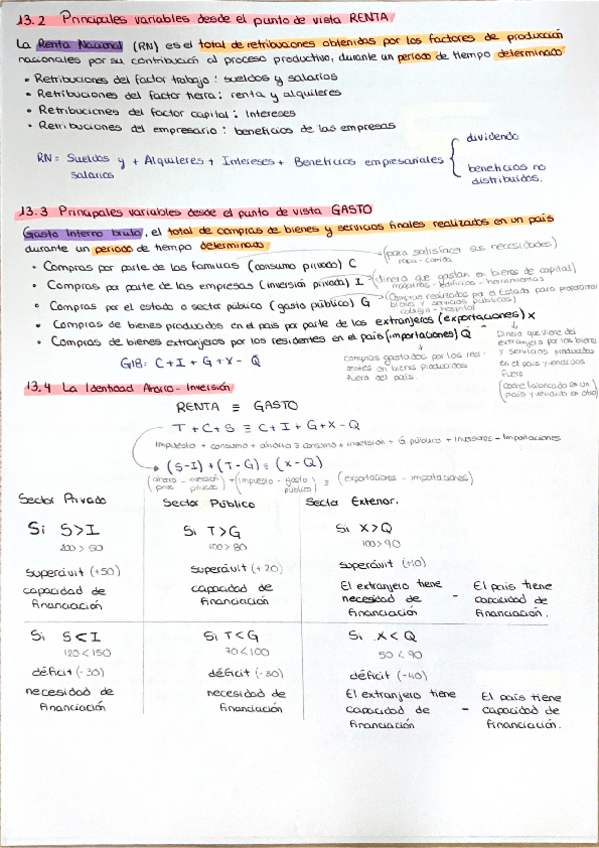 13.2 Principales variables desde el punto de vista RENTA
La Renta Nacional (RN) es el total de retribuciones obtenidas por los factores de producción
nacionales por su contribución al proceso productivo, durante un periodo de tiempo determinado
• Retribuciones del factor trabajo: sueldos y salarios
• Retribuciones del factor tierra: renta y alquileres
• Retribuciones del factor capital: intereses
• Retribuciones del empresario: beneficios de las empresas
dividendo
RN = Sueldos y + Alquileres + Intereses + Beneficios empresariales
salarios
beneficios no
distribuidos.
13.3 Principales variables desde el punto de vista GASTO
Gasto Interno bruto, el total de compras de bienes y servicios finales realizados en un país
durante un periodo de tiempo determinado
(para satisfacer sus necesidades)
ropa - comida
• Compras por parte de las familias (consumo privado) C
• Compras por parte de las empresas (inversión privada) I
(dinero que gastan en bienes de capital)
maquinas - edificios - herramientas
• Compras por el estado o sector público (gasto público) G
(Compras realizadas por el Estado para proporcionar
bienes y servicios públicos)
colegio - hospital
• Compras de bienes producidos en el país por parte de los extranjeros (exportaciones) X
• Compras de bienes extranjeros por los residentes en el país (importaciones) Q
Dinero que viene del
extranjero por los bienes
y servicios producidos
en el país y vendidos
fuera
(coche fabricado en un
país y vendido en otro)
compras gastadas por los
en bienes producidos
fuera del país.
GIB: C + I + G + X - Q
13.4 La Identidad Ahorro - Inversión
RENTA ≡ GASTO
T + C + S ≡ C + I + G + X - Q
Impuesto + consumo + ahorro ≡ consumo + inversión + G público + - Importaciones
(S-I) + (T-G) ≡ (X-Q)
(ahorro - inversión) + (impuesto - gasto) ≡ (exportaciones - importaciones)
privado público
Sector Privado Sector Público Sector Exterior.
Si S>I Si T>G Si X>Q
100>80 100>90
superávit (+50) superávit (+20) superávit (+10)
capacidad de capacidad de El extranjero tiene El país tiene
financiación financiación necesidad de - capacidad de
financiación financiación.
Si S<I Si T<G Si X<Q
120<150 70<100 50<90
déficit (-30) déficit (-30) déficit (-40)
necesidad de necesidad de El extranjero tiene El país tiene
financiación financiación capacidad de - capacidad de
financiación financiación.